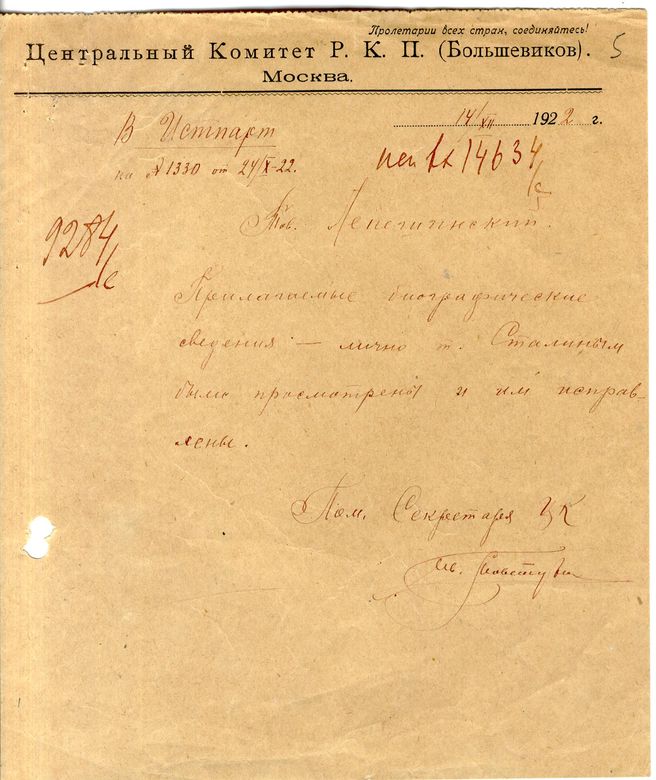 Пролетарии всех стран, соединяйтесь!
Центральный Комитет Р. К. П. (Большевиков). 5
Москва.
14/XII 1922 г.
В Истпарт
на № 1330 от 24/X-22.
14634/с
9284/с
Тов. Лепешинский.
Прилагаемые биографические
сведения — лично т. Сталиным
были просмотрены и им исправ-
лены.
Пом. Секретаря ЦК